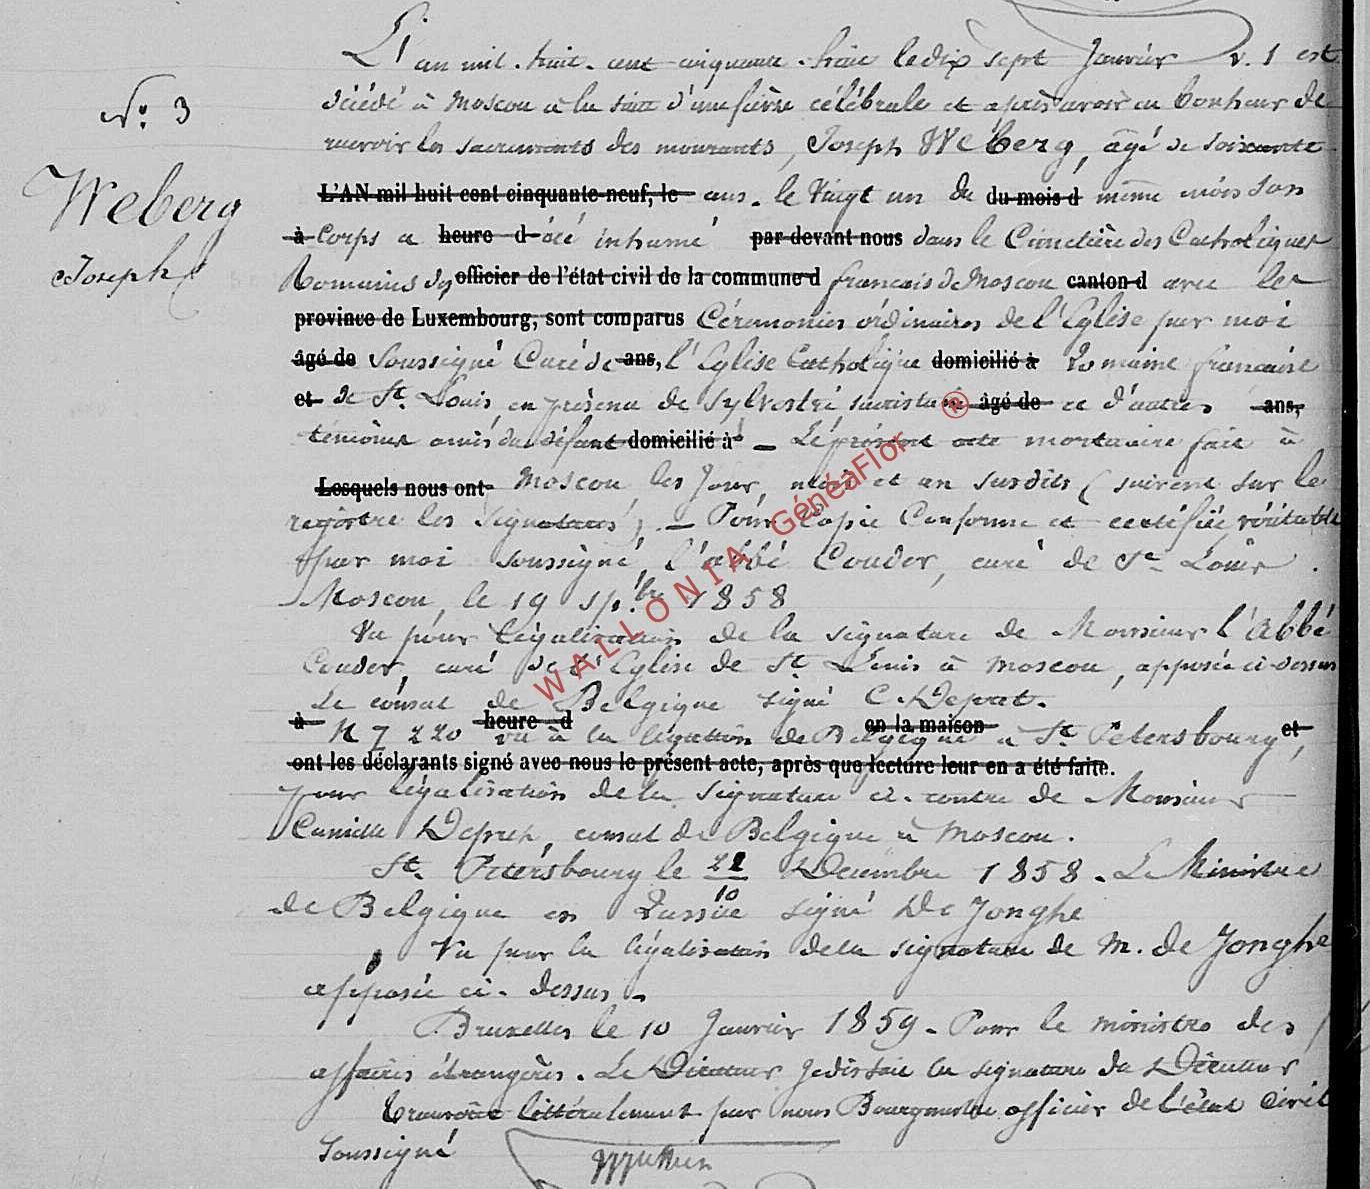 N°. 3
Weberg
Joseph
L'an mil. huit. cent cinquante. huit le dix sept Janvier v. 1 est
décédé à Moscou à la suite d'une fièvre célébrale et après avoir eu bonheur de
recevoir les sacrements des mourants, Joseph Weberg, âgé de soixante
L'AN mil huit cent cinquante-neuf, le ans. le Vingt un du du mois d même mois son
à corps a heure d été inhumé par devant nous dans le Cimetière des Catholiques
Romains officier de l'état civil de la commune d français de Moscou canton d avec les
province de Luxembourg, sont comparus Cérémonies ordinaires de l'Eglise par moi
âgé de Soussigné Curé de ans, l'Eglise Catholique domicilié à Romaine française
et de St. Louis, en présence de Sylvestre sacristain âgé de et d'autres ans,
témoins amis du défunt domicilié à – Le présent acte mortuaire fait à
Lesquels nous ont Moscou, les Jour, mois et an susdits (suivent sur le
registre les signatures). – Pour Copie Conforme et certifiée véritable
par moi soussigné, l'abbé Couder, curé de St Louis.
Moscou, le 19 Sp.bre 1858
Vu pour légalisation de la signature de Monsieur l'Abbé
Couder, curé de l'Eglise de St. Louis à Moscou, apposée ci-dessus
Le consul de Belgique signé C. Depret.
à N 7220 heure d vu à la légation de Belgique en la maison à St. Petersbourg et,
ont les déclarants signé avec nous le présent acte, après que lecture leur en a été faite.
pour légalisation de la signature ci-contre de Monsieur
Camille Depret, consul de Belgique à Moscou.
St. Petersbourg le 22/10 Decembre 1858. Le Ministre
de Belgique en Russie signé De Jonghe
Vu pour la légalisation de la signature de M. de Jonghe
apposée ci-dessus.
Bruxelles le 10 Janvier 1859. Pour le ministre des
affaires étrangères. Le Directeur signature du Directeur
Transcrit littéralement par nous Bourgmestre officier de l'état civil
soussigné
WALLONIA GénéaFlor ®